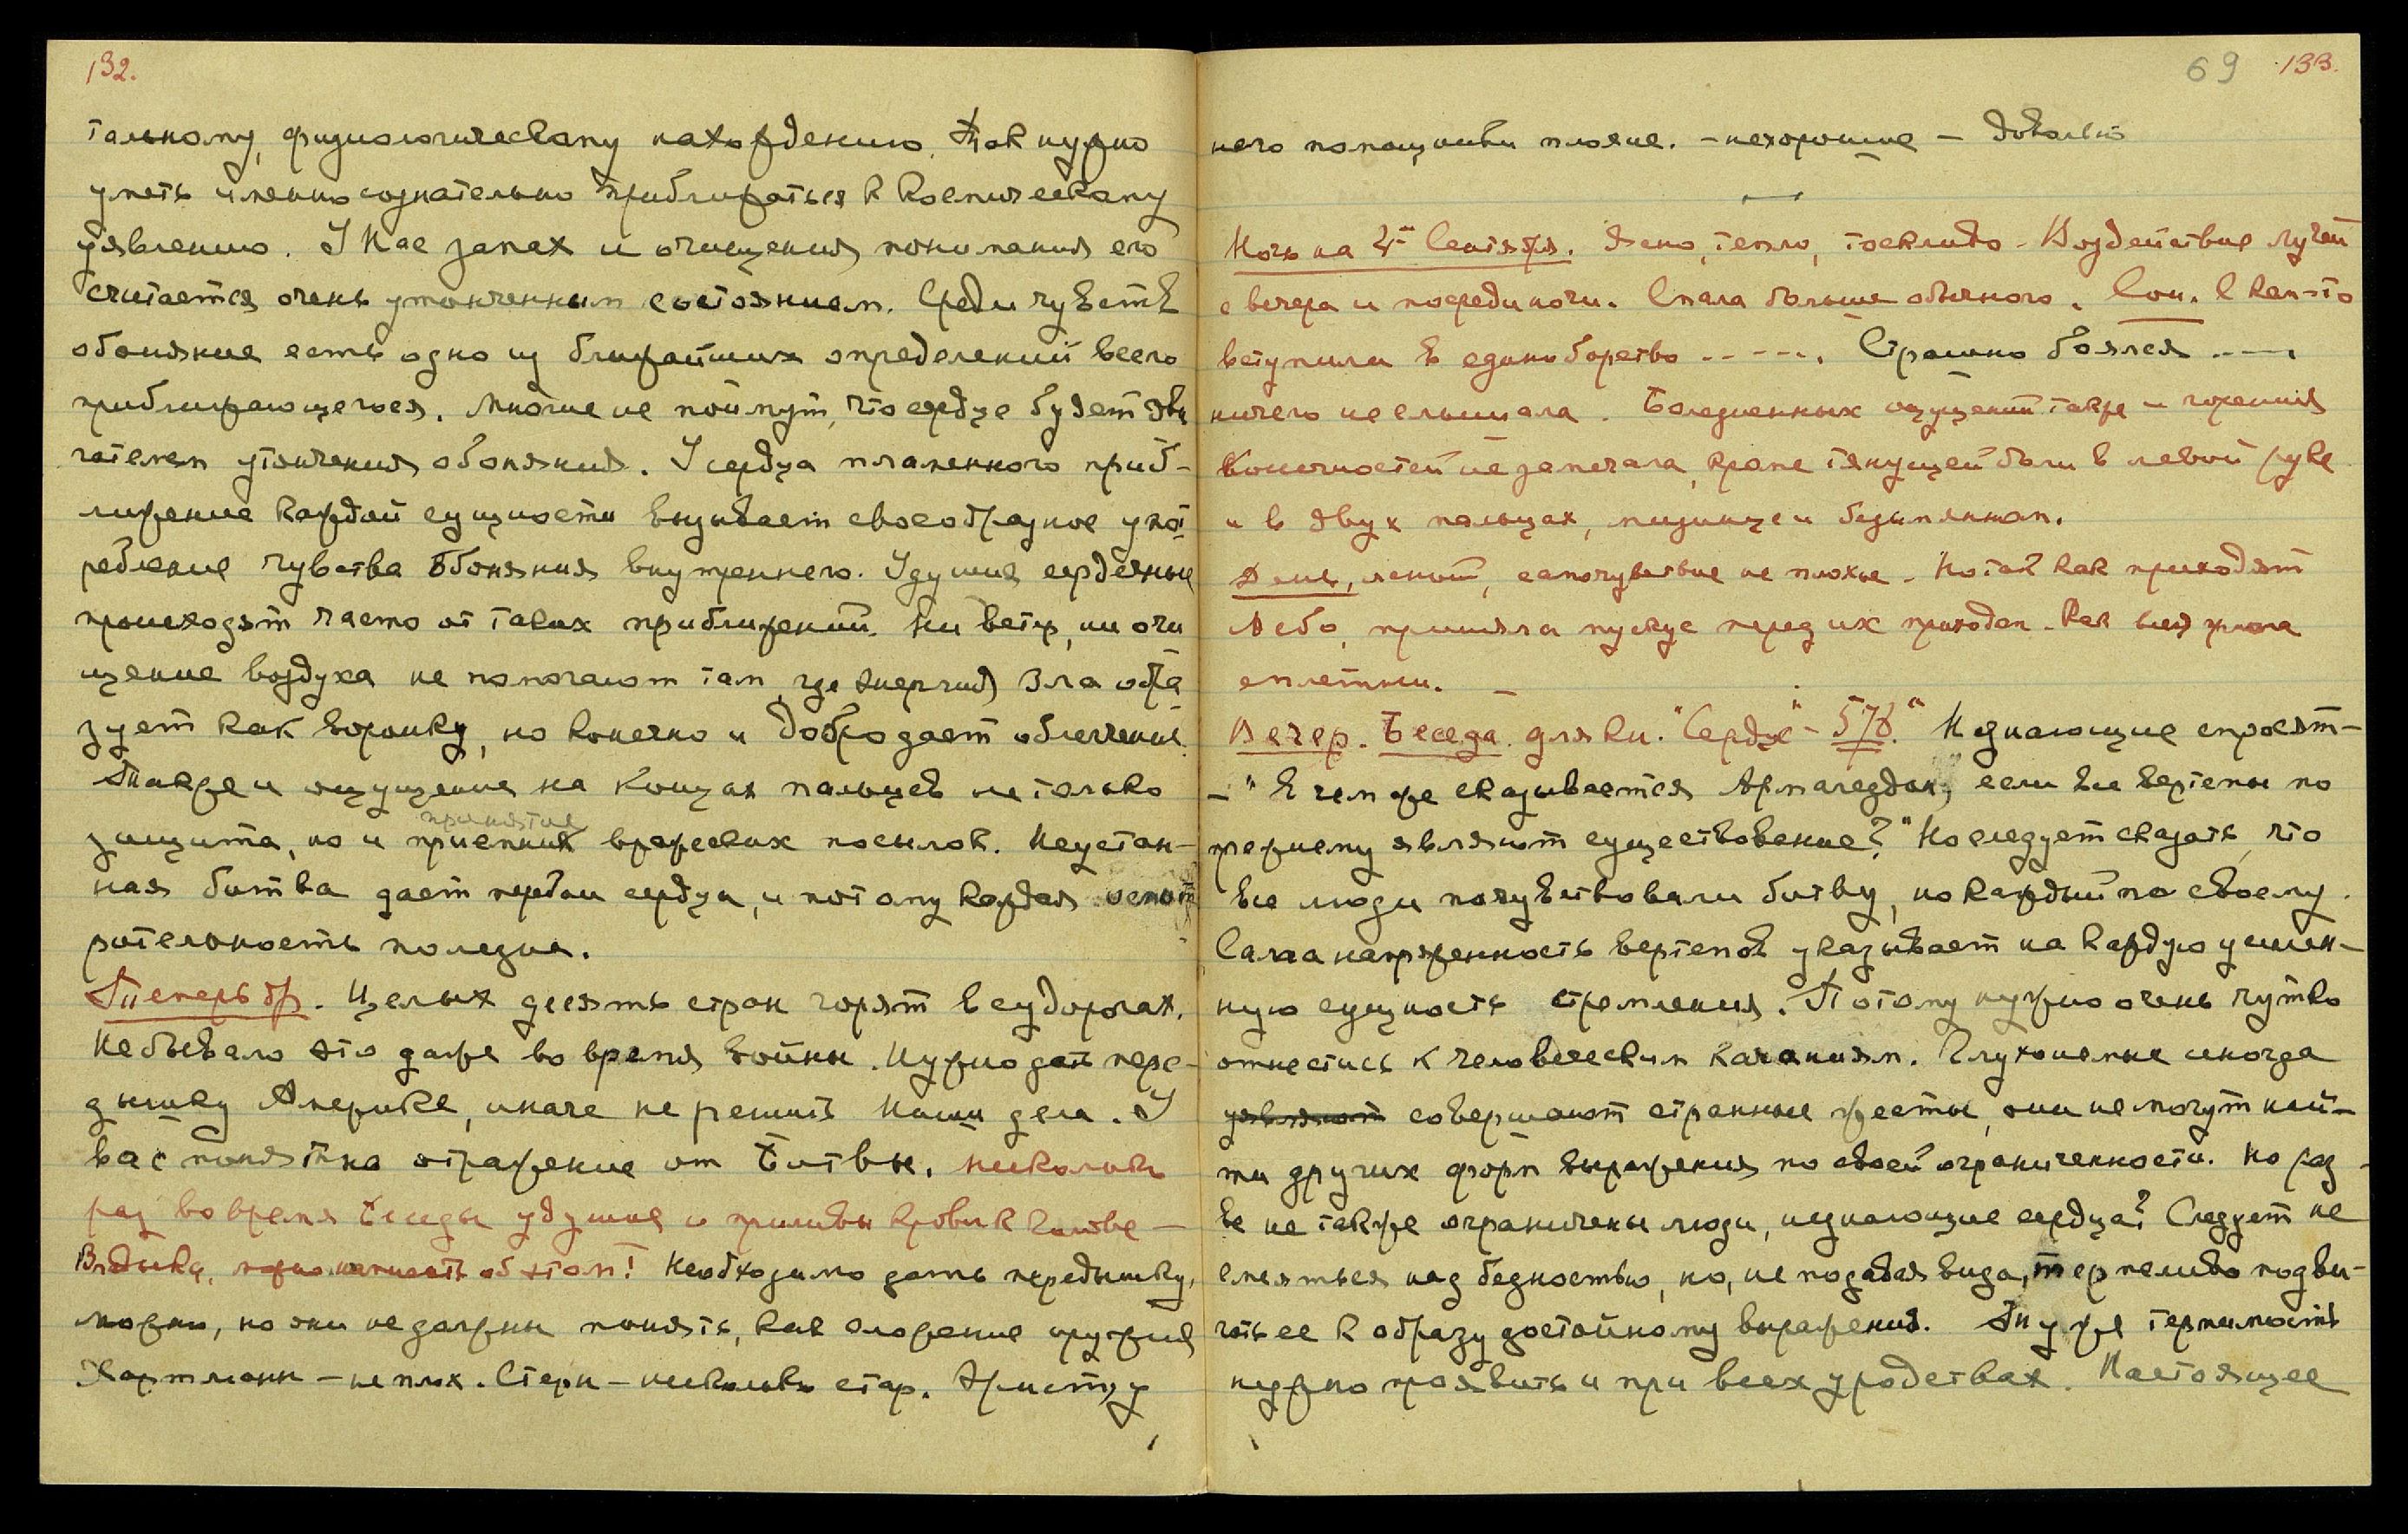 132.
тальному, физиологическому нахождению. Так нужно
уметь именно сознательно приближаться к космическому
явлению. У Нас запах и очищения понимания его
считается очень утонченным состоянием. Среди чувств
обоняние есть одно из ближайших определений всего
приближающегося. Многие не поймут, что сердце будет дви
гателем утончения обоняния. У сердца пламенного приб-
лижение каждой сущности вызывает своеобразное упот
ребление чувства обоняния внутреннего. Удушия сердечные
происходят часто от таких приближений. Ни ветер, ни очи
щение воздуха не помогают там, где энергия Зла обра
зует как воронку, но конечно и Добро дает облегчение.
Также и ощущение на концах пальцев не только
принятие
защита, но и приемник вражеских посылок. Неустан-
ная битва дает перебои сердца, и потому каждая осмот
рительность полезна.
Теперь др. Целых десять стран горят в судорогах.
Не бывало это даже во время войны. Нужно дать пере-
дышку Америке, иначе не решить Наши дела. У
вас понятна отражение от Битвы. Несколько
раз во время Беседы удушие и приливы крови к голове —
Владыка, об этом! Необходимо дать передышку,
можно, но они не должны понять, как сложение оружия
Хартманн — не плох. Стерн — несколько стар.
69 133.
него помощники плохие. — нехорошие — Довольно
—
Ночь на 4ое Сентября. Ясно, тепло, тоскливо. Воздействие лучей
с вечера и посреди ночи. Спала больше обычного. Сон. С кем-то
вступили в единоборство -----. Страшно боялся ----.
ничего не слышала. Болезненных ощущений также и горения
конечностей не замечала, кроме тянущей боли в левой руке
и в двух пальцах, мизинце и безымянном.
День, ясный, самочувствие не плохое. Но так как приходят
Лебо, приняла мускус перед их приходом. Как всегда
сплетни. —
Вечер. Беседа. для кн. "Сердце" - 578." Незнающие спросят —
— "В чем же сказывается Армагеддон, если все вертепы по
прежнему являют существование?" Но следует сказать, что
все люди почувствовали битву, но каждый по своему.
Самая напряженность вертепов указывает на каждую усилен-
ную сущность стремления. Потому нужно очень чутко
отнестись к человеческим качаниям. Глухонемые иногда
уявляют совершают странные жесты, они не могут най-
ти других форм выражения по своей ограниченности. Но раз-
ве не также ограничены люди, незнающие сердца? Следует не
смеяться над бедностью, но, не подавая вида, терпеливо подви-
гать ее к образу достойному выражения. Ту же терпимость
нужно проявить и при всех уродствах. Настоящее